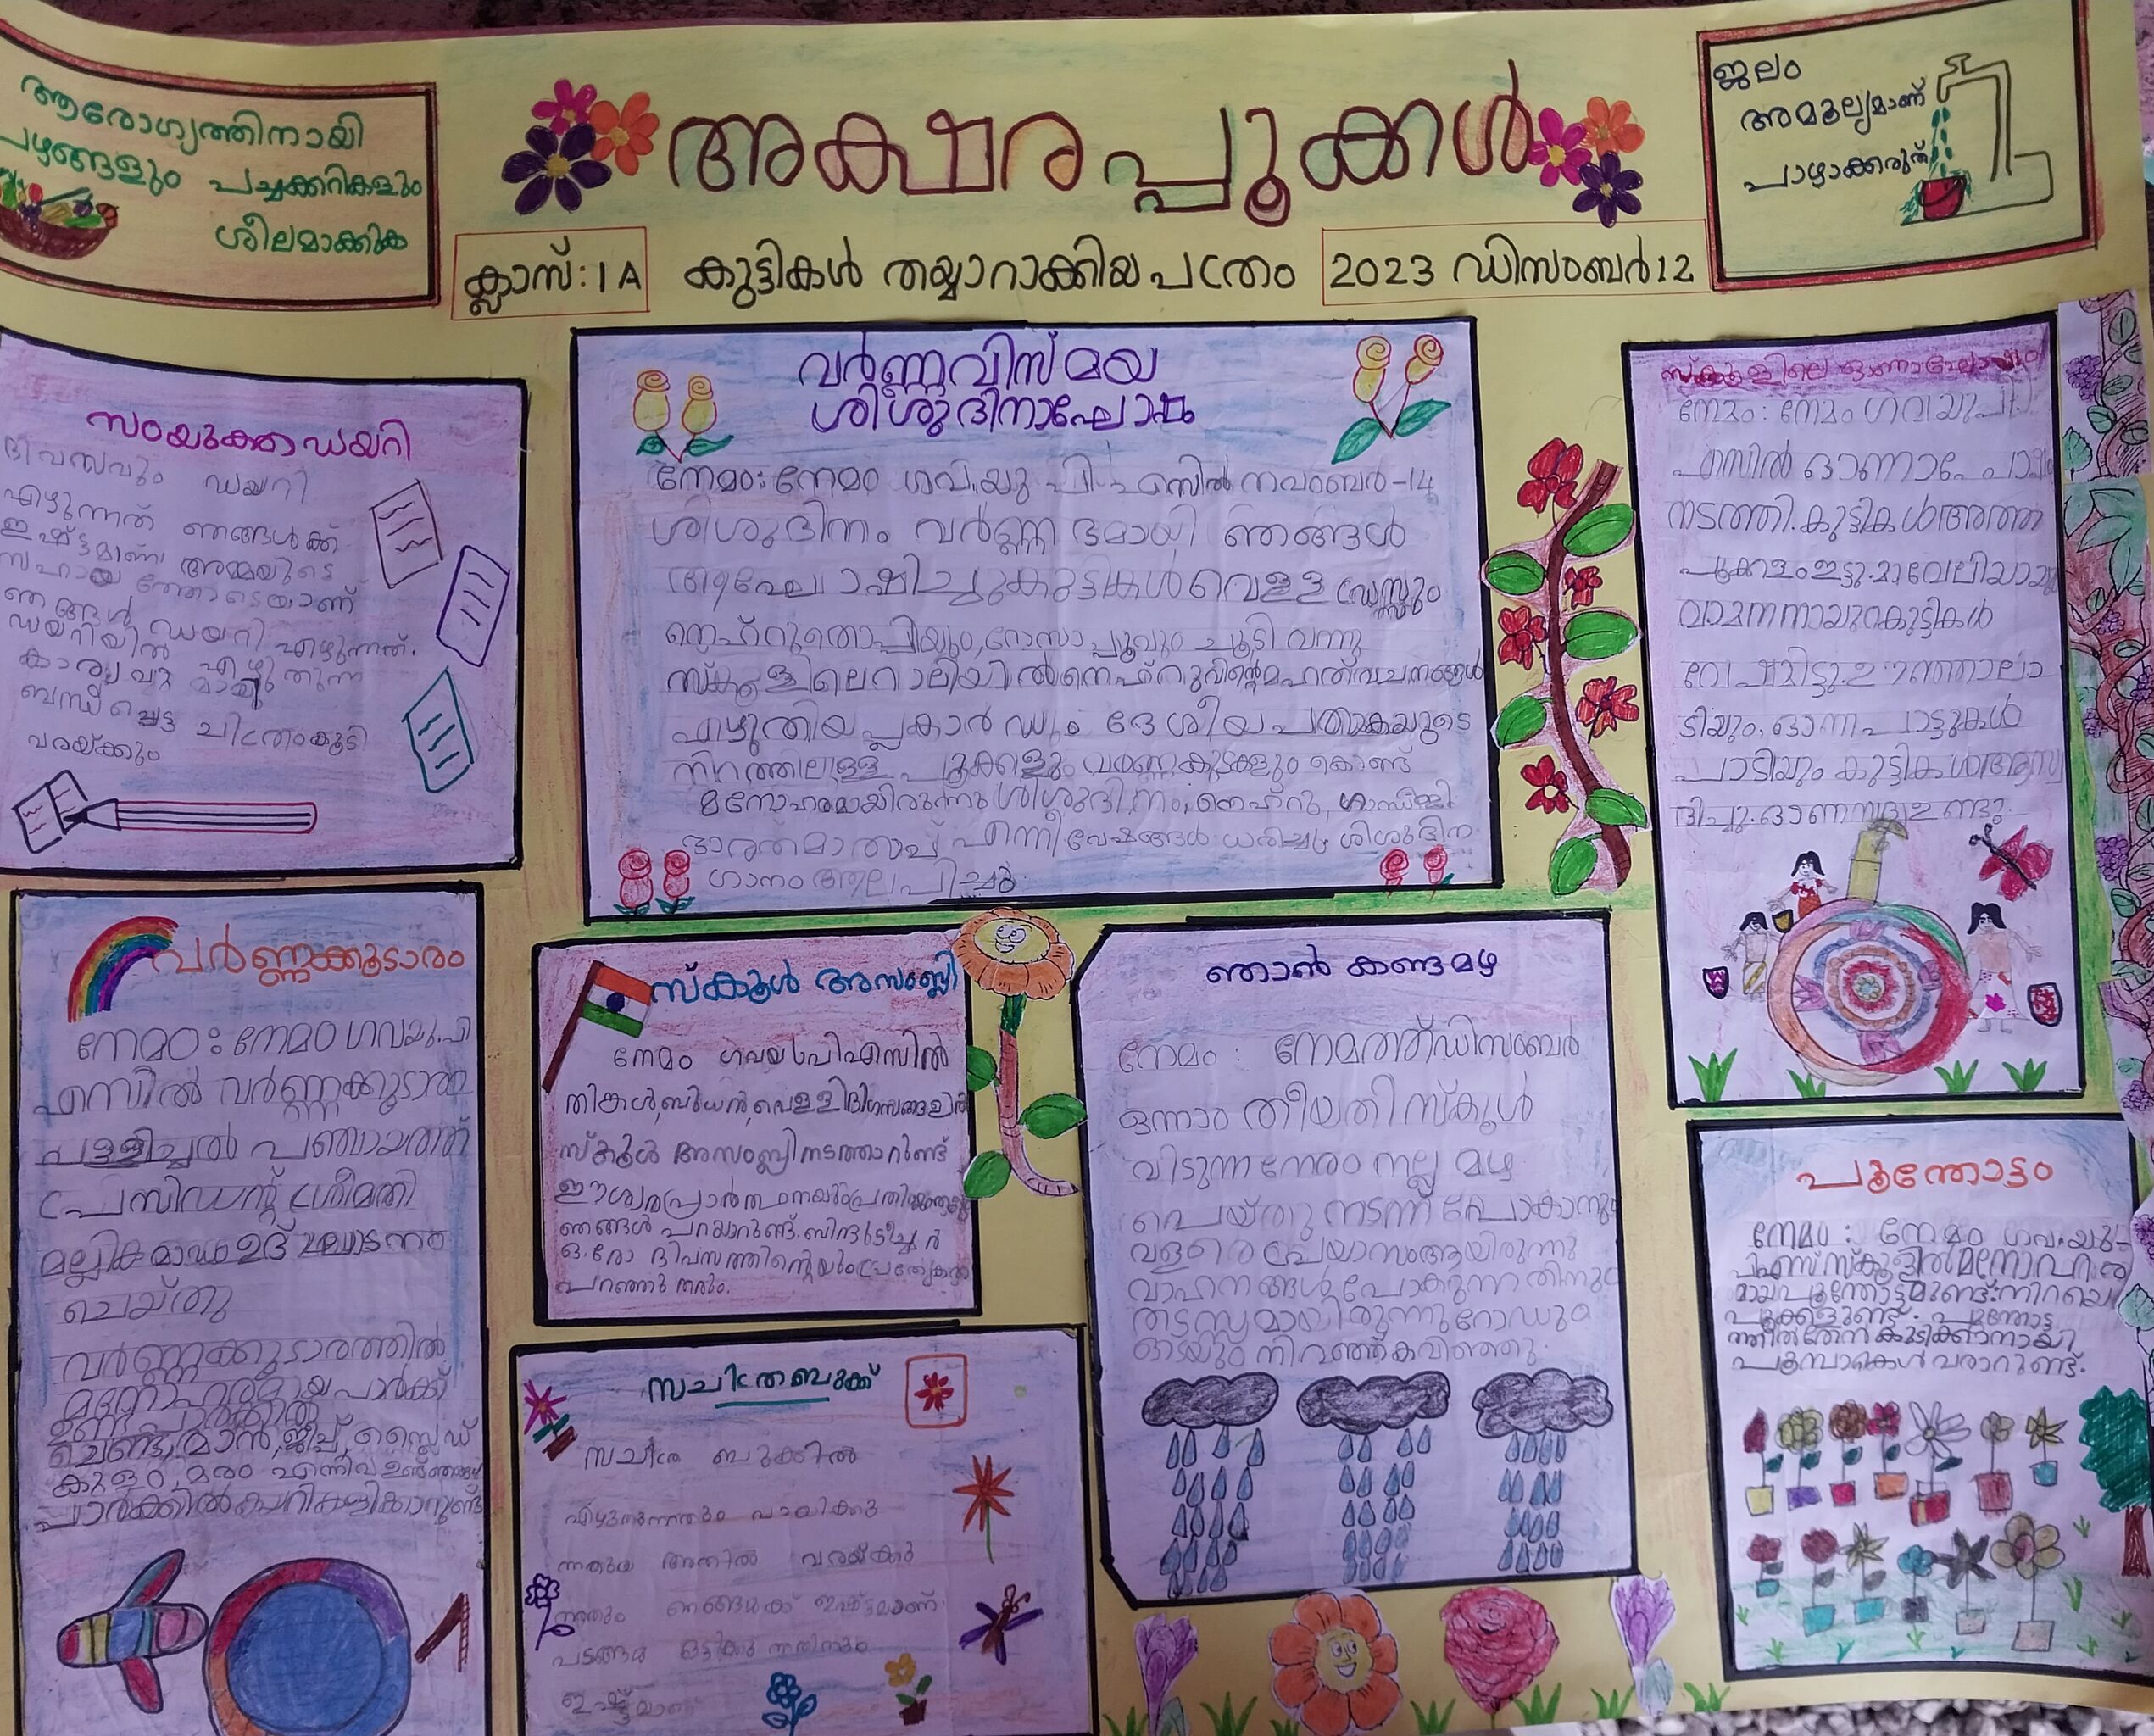 ആരോഗ്യത്തിനായി
പഴങ്ങളും പച്ചക്കറികളും
ശീലമാക്കുക
അക്ഷരപ്പൂക്കൾ
ജലം
അമൂല്യമാണ്
പാഴാക്കരുത്
ക്ലാസ്: 1 A കുട്ടികൾ തയ്യാറാക്കിയ പത്രം 2023 ഡിസംബർ 12
സംയുക്ത ഡയറി
ദിവസവും ഡയറി
എഴുന്നത് ഞങ്ങൾക്ക്
ഇഷ്ട്ടമാണ് അമ്മയുടെ
സഹായത്തോടെയാണ്
ഞങ്ങൾ ഡയറി എഴുന്നത്.
ഡയറിയിൽ എഴുതുന്ന
കാര്യവു മായി
ബന്ധപ്പെട്ട ചിത്രംകൂടി
വരയ്ക്കും
വർണ്ണവിസ്മയ
ശിശുദിനാഘോഷം
നേമം: നേമം ഗവ.യു പി എസിൽ നവംബർ-14
ശിശുദിനം വർണ്ണാഭമായി ഞങ്ങൾ
ആഘോഷിച്ചു കുട്ടികൾ വെള്ള ഡ്രസ്സും
നെഹ്റുതൊപ്പിയും, റോസാപ്പൂവും ചൂടി വന്നു
സ്കൂളിലെ റാലിയിൽ നെഹ്റുവിന്റെ മഹത് വചനങ്ങൾ
എഴുതിയ പ്ലകാർഡും ദേശീയ പതാകയുടെ
നിറത്തിലുള്ള പൂക്കളും വർണ്ണക്കുടകളും കൊണ്ട്
മനോഹരമായിരുന്നു ശിശുദിനം. നെഹ്റു, ഗാന്ധിജി
ഭാരത് മാതാവ് എന്നീ വേഷങ്ങൾ ധരിച്ചു ശിശുദിന
ഗാനം ആലപിച്ചു
സ്കൂളിലെ ഓണാഘോഷം
നേമം: നേമം ഗവ യു പി.
എസിൽ ഓണാഘോഷം
നടത്തി. കുട്ടികൾ അത്ത
പൂക്കളം ഇട്ടു. മാവേലിയായും
വാമനനായും കുട്ടികൾ
വേഷമിട്ടു. ഊഞ്ഞാലാ
ടിയും, ഓണപ്പാട്ടുകൾ
പാടിയും കുട്ടികൾ
ഓണസദ്യ ഉണ്ടു.
വർണ്ണക്കൂടാരം
നേമം: നേമം ഗവ യു.പി
എസിൽ വർണ്ണക്കൂടാരം
പള്ളിച്ചൽ പഞ്ചായത്ത്
പ്രസിഡന്റ് ശ്രീമതി
മല്ലിക മാഡം ഉദ്
ചെയ്തു
വർണ്ണക്കൂടാരത്തിൽ
മനോഹരമായ പാർക്ക്
ഉണ്ട് പാർക്കിൽ
ചെണ്ട, മാൻ, ജീപ്പ്, സ്ലൈഡ്
കുളം, മരം എന്നിവ ഉണ്ട്
പാർക്കിൽ കയറി കളിക്കാറുണ്ട്
സ്കൂൾ അസംബ്ലി
നേമം ഗവ യുപിഎസിൽ
തിങ്കൾ, ബുധൻ, വെള്ളി ദിവസങ്ങളിൽ
സ്കൂൾ അസംബ്ലി നടത്താറുണ്ട്
ഈശ്വരപ്രാർത്ഥനയും പ്രതിജ്ഞയും
ഞങ്ങൾ പറയാറുണ്ട്. ബിന്ദു ടീച്ചർ
ഓരോ ദിവസത്തിന്റെയും പ്രത്യേകത
പറഞ്ഞു തരും.
ഞാൻ കണ്ട മഴ
നേമം: നേമത്ത് ഡിസംബർ
ഒന്നാം തീയതി സ്കൂൾ
വിടുന്ന നേരം നല്ല മഴ
പെയ്തു നടന്ന് പോകാനും
വളരെ പ്രയാസം ആയിരുന്നു
വാഹനങ്ങൾ പോകുന്നതിനും
തടസ്സമായിരുന്നു റോഡും
ഓടയും നിറഞ്ഞ് കവിഞ്ഞു.
പൂന്തോട്ടം
നേമം: നേമം ഗവ.യു-
പിഎസ് സ്കൂളിൽ മനോഹര
മായ പൂന്തോട്ടമുണ്ട്. നിറയെ
പൂക്കളുണ്ട്. പൂന്തോട്ട
ത്തിൽ തേൻ കുടിക്കാനായി
പൂമ്പാറ്റകൾ വരാറുണ്ട്.
സചിത്ര ബുക്ക്
സചിത്ര ബുക്കിൽ
എഴുതുന്നതും വായിക്കു
ന്നതും അതിൽ വരയ്ക്കു
ന്നതും ഞങ്ങൾക്ക് ഇഷ്ട്ടമാണ്.
പടങ്ങൾ ഒട്ടിക്കുന്നതിനും
ഇഷ്ട്ടമാണ്